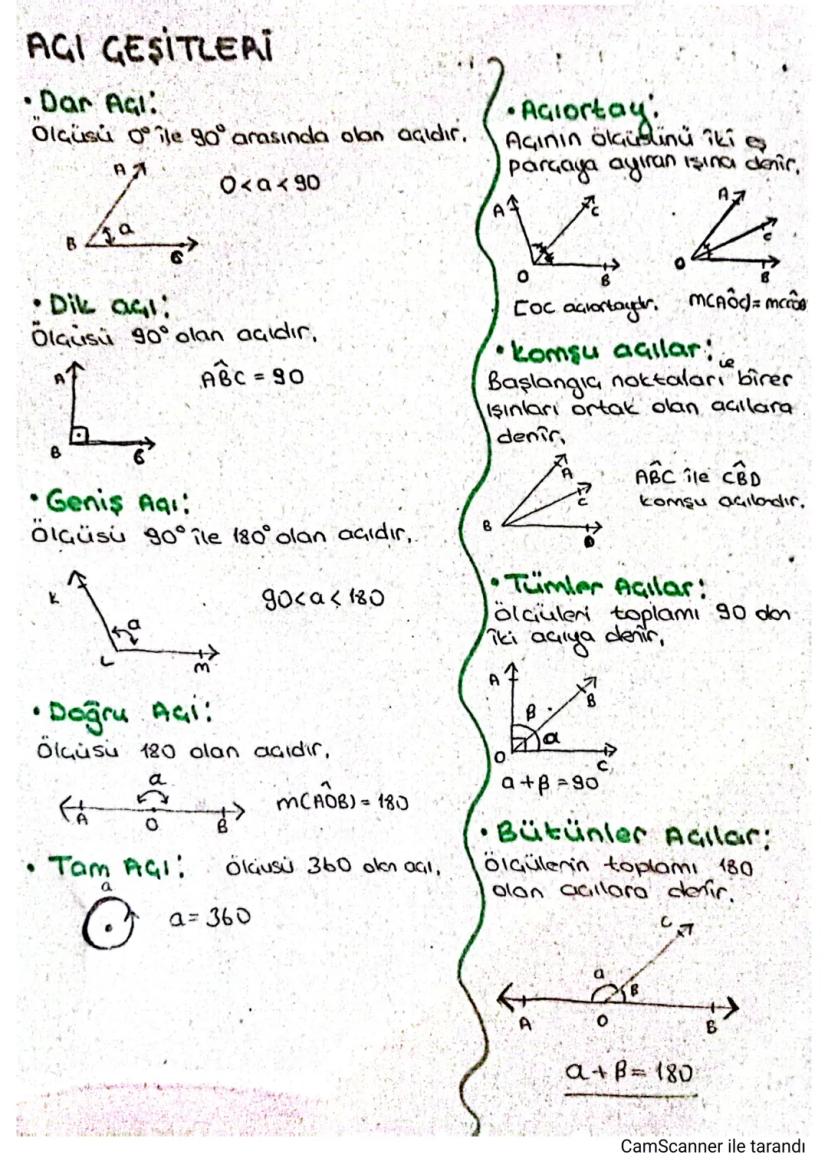 AÇI ÇEŞİTLERİ
• Dar Açı:
Ölçüsü 0° ile 90° arasında olan açıdır.
A
0<a<90
a
B
C
• Dik açı:
Ölçüsü 90° olan açıdır.
A
AB̂C = 90
B
C
• Geniş Açı:
Ölçüsü 90° ile 180° olan açıdır.
K
90<a<180
a
L
M
• Doğru Açı:
Ölçüsü 180 olan açıdır.
a
m(AÔB) = 180
A O B
• Tam Açı: Ölçüsü 360 olan açı.
a
a = 360
• Açıortay:
Açının ölçüsünü iki eş
parçaya ayıran ışına denir.
A C
O B
A
C
O B
[OC açıortaydır. m(AÔC)=
• Komşu açılar:
Başlangıç noktaları ve birer
ışınları ortak olan açıllara
denir.
A
C
B
D
AB̂C ile CB̂D
komşu açılardır.
• Tümler Açılar:
Ölçüleri toplamı 90 olan
iki açıya denir.
A
B
β
α
O C
a+β=90
• Bütünler Açılar:
Ölçülerin toplamı 180
olan açıllara denir.
C
a
β
A O B
a+β=180
CamScanner ile tarandı